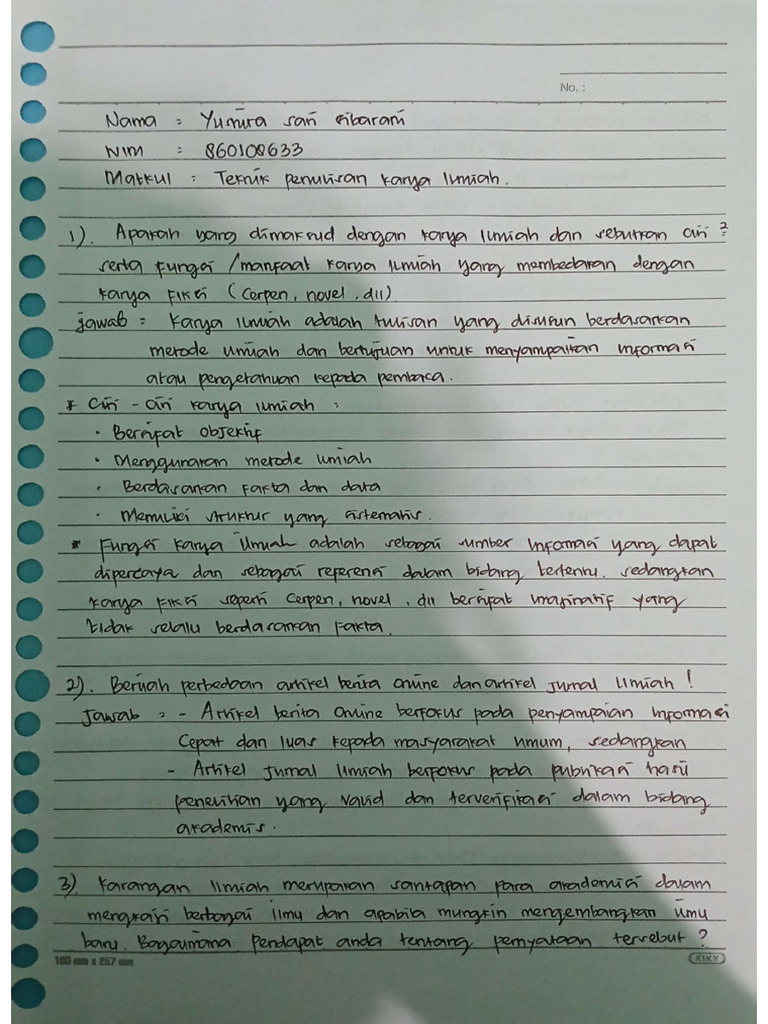 No. :
Nama : Yusnira sari sibarani
NIM : 860108633
Matkul : Teknik penulisan karya ilmiah.
1). Apakah yang dimaksud dengan karya ilmiah dan sebutkan ciri ²
serta fungsi / manfaat karya ilmiah yang membedakan dengan
karya fiksi (cerpen, novel, dll)
jawab = karya ilmiah adalah tulisan yang disusun berdasarkan
metode ilmiah dan bertujuan untuk menyampaikan informasi
atau pengetahuan kepada pembaca.
* Ciri - ciri karya ilmiah :
• Bersifat objektif
• Menggunakan metode ilmiah
• Berdasarkan fakta dan data
• Memiliki struktur yang sistematis.
* Fungsi karya ilmiah adalah sebagai sumber informasi yang dapat
dipercaya dan sebagai referensi dalam bidang tertentu. sedangkan
karya fiksi seperti cerpen, novel, dll bersifat imajinatif yang
tidak selalu berdasarkan fakta.
2). Berilah perbedaan artikel berita online dan artikel jurnal ilmiah !
Jawab : - Artikel berita online berfokus pada penyampaian informasi
cepat dan luas kepada masyarakat umum, sedangkan
- Artikel jurnal ilmiah berfokus pada publikasi hasil
penelitian yang valid dan terverifikasi dalam bidang
akademis.
3) Karangan ilmiah merupakan santapan para akademisi dalam
mengkaji berbagai ilmu dan apabila mungkin mengembangkan ilmu
baru. Bagaimana pendapat anda tentang pernyataan tersebut ?
180 mm x 257 mm
KIKY